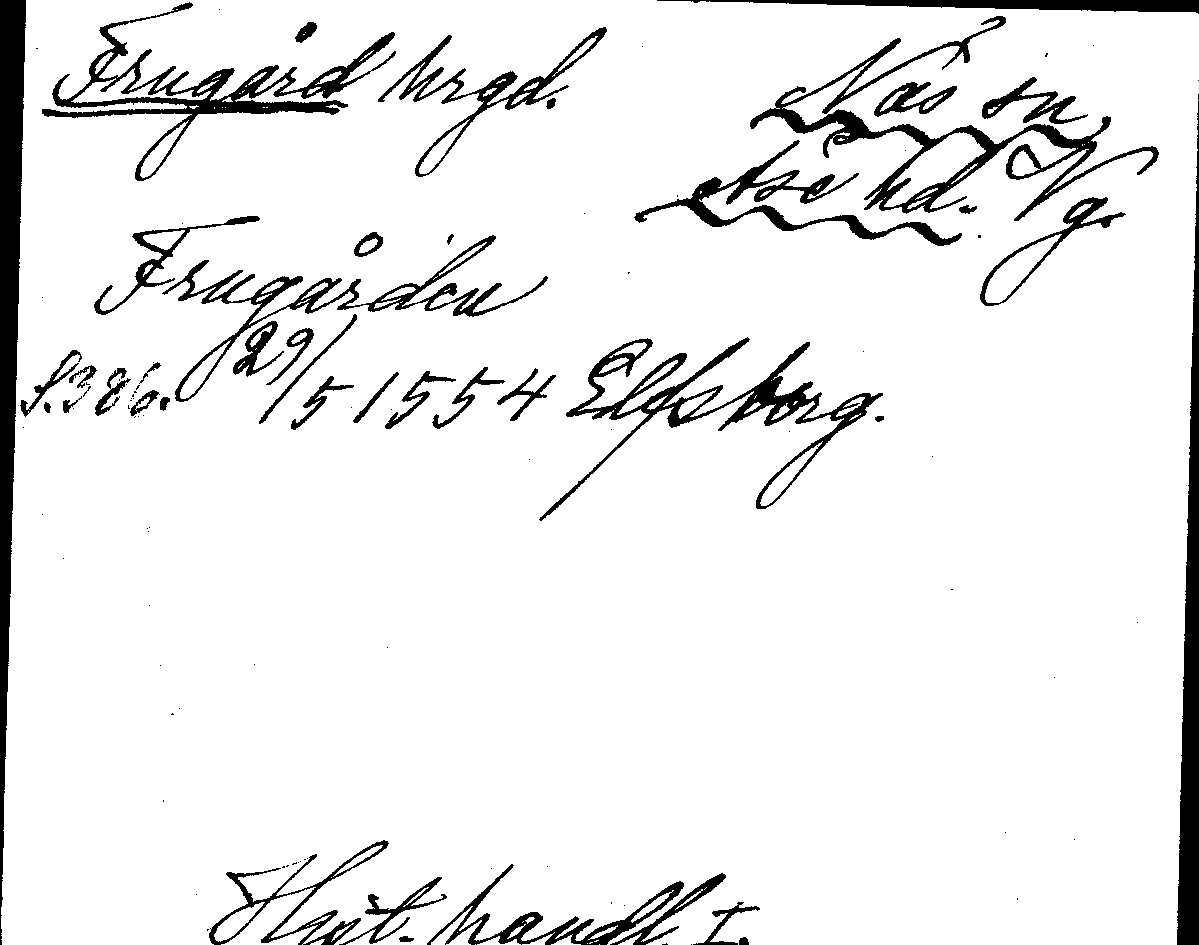 Frugård hrgd.
Näs sn,
Åse hd. Vg.
Frugården
S. 386. 29/5 1554 Elfsborg.
Hist. handl. I.